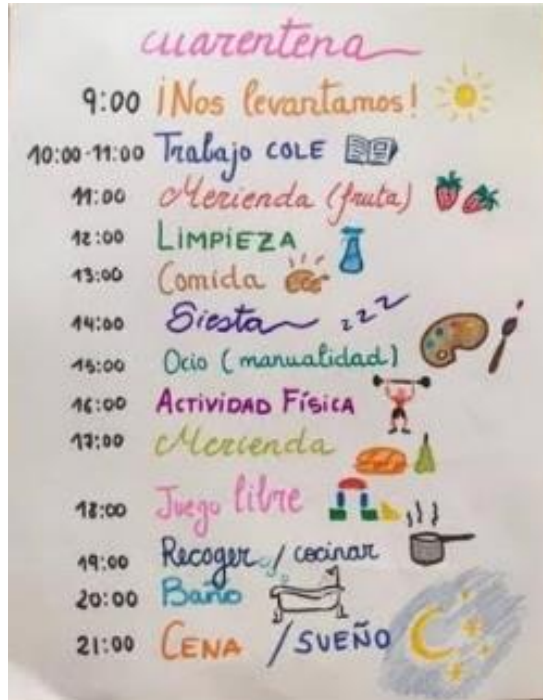 cuarentena
9:00 ¡Nos levantamos!
10:00-11:00 Trabajo COLE
11:00 Merienda (fruta)
12:00 LIMPIEZA
13:00 Comida
14:00 Siesta zzz
15:00 Ocio (manualidad)
16:00 ACTIVIDAD FÍSICA
17:00 Merienda
18:00 Juego libre
19:00 Recoger / cocinar
20:00 Baño
21:00 CENA / SUEÑO